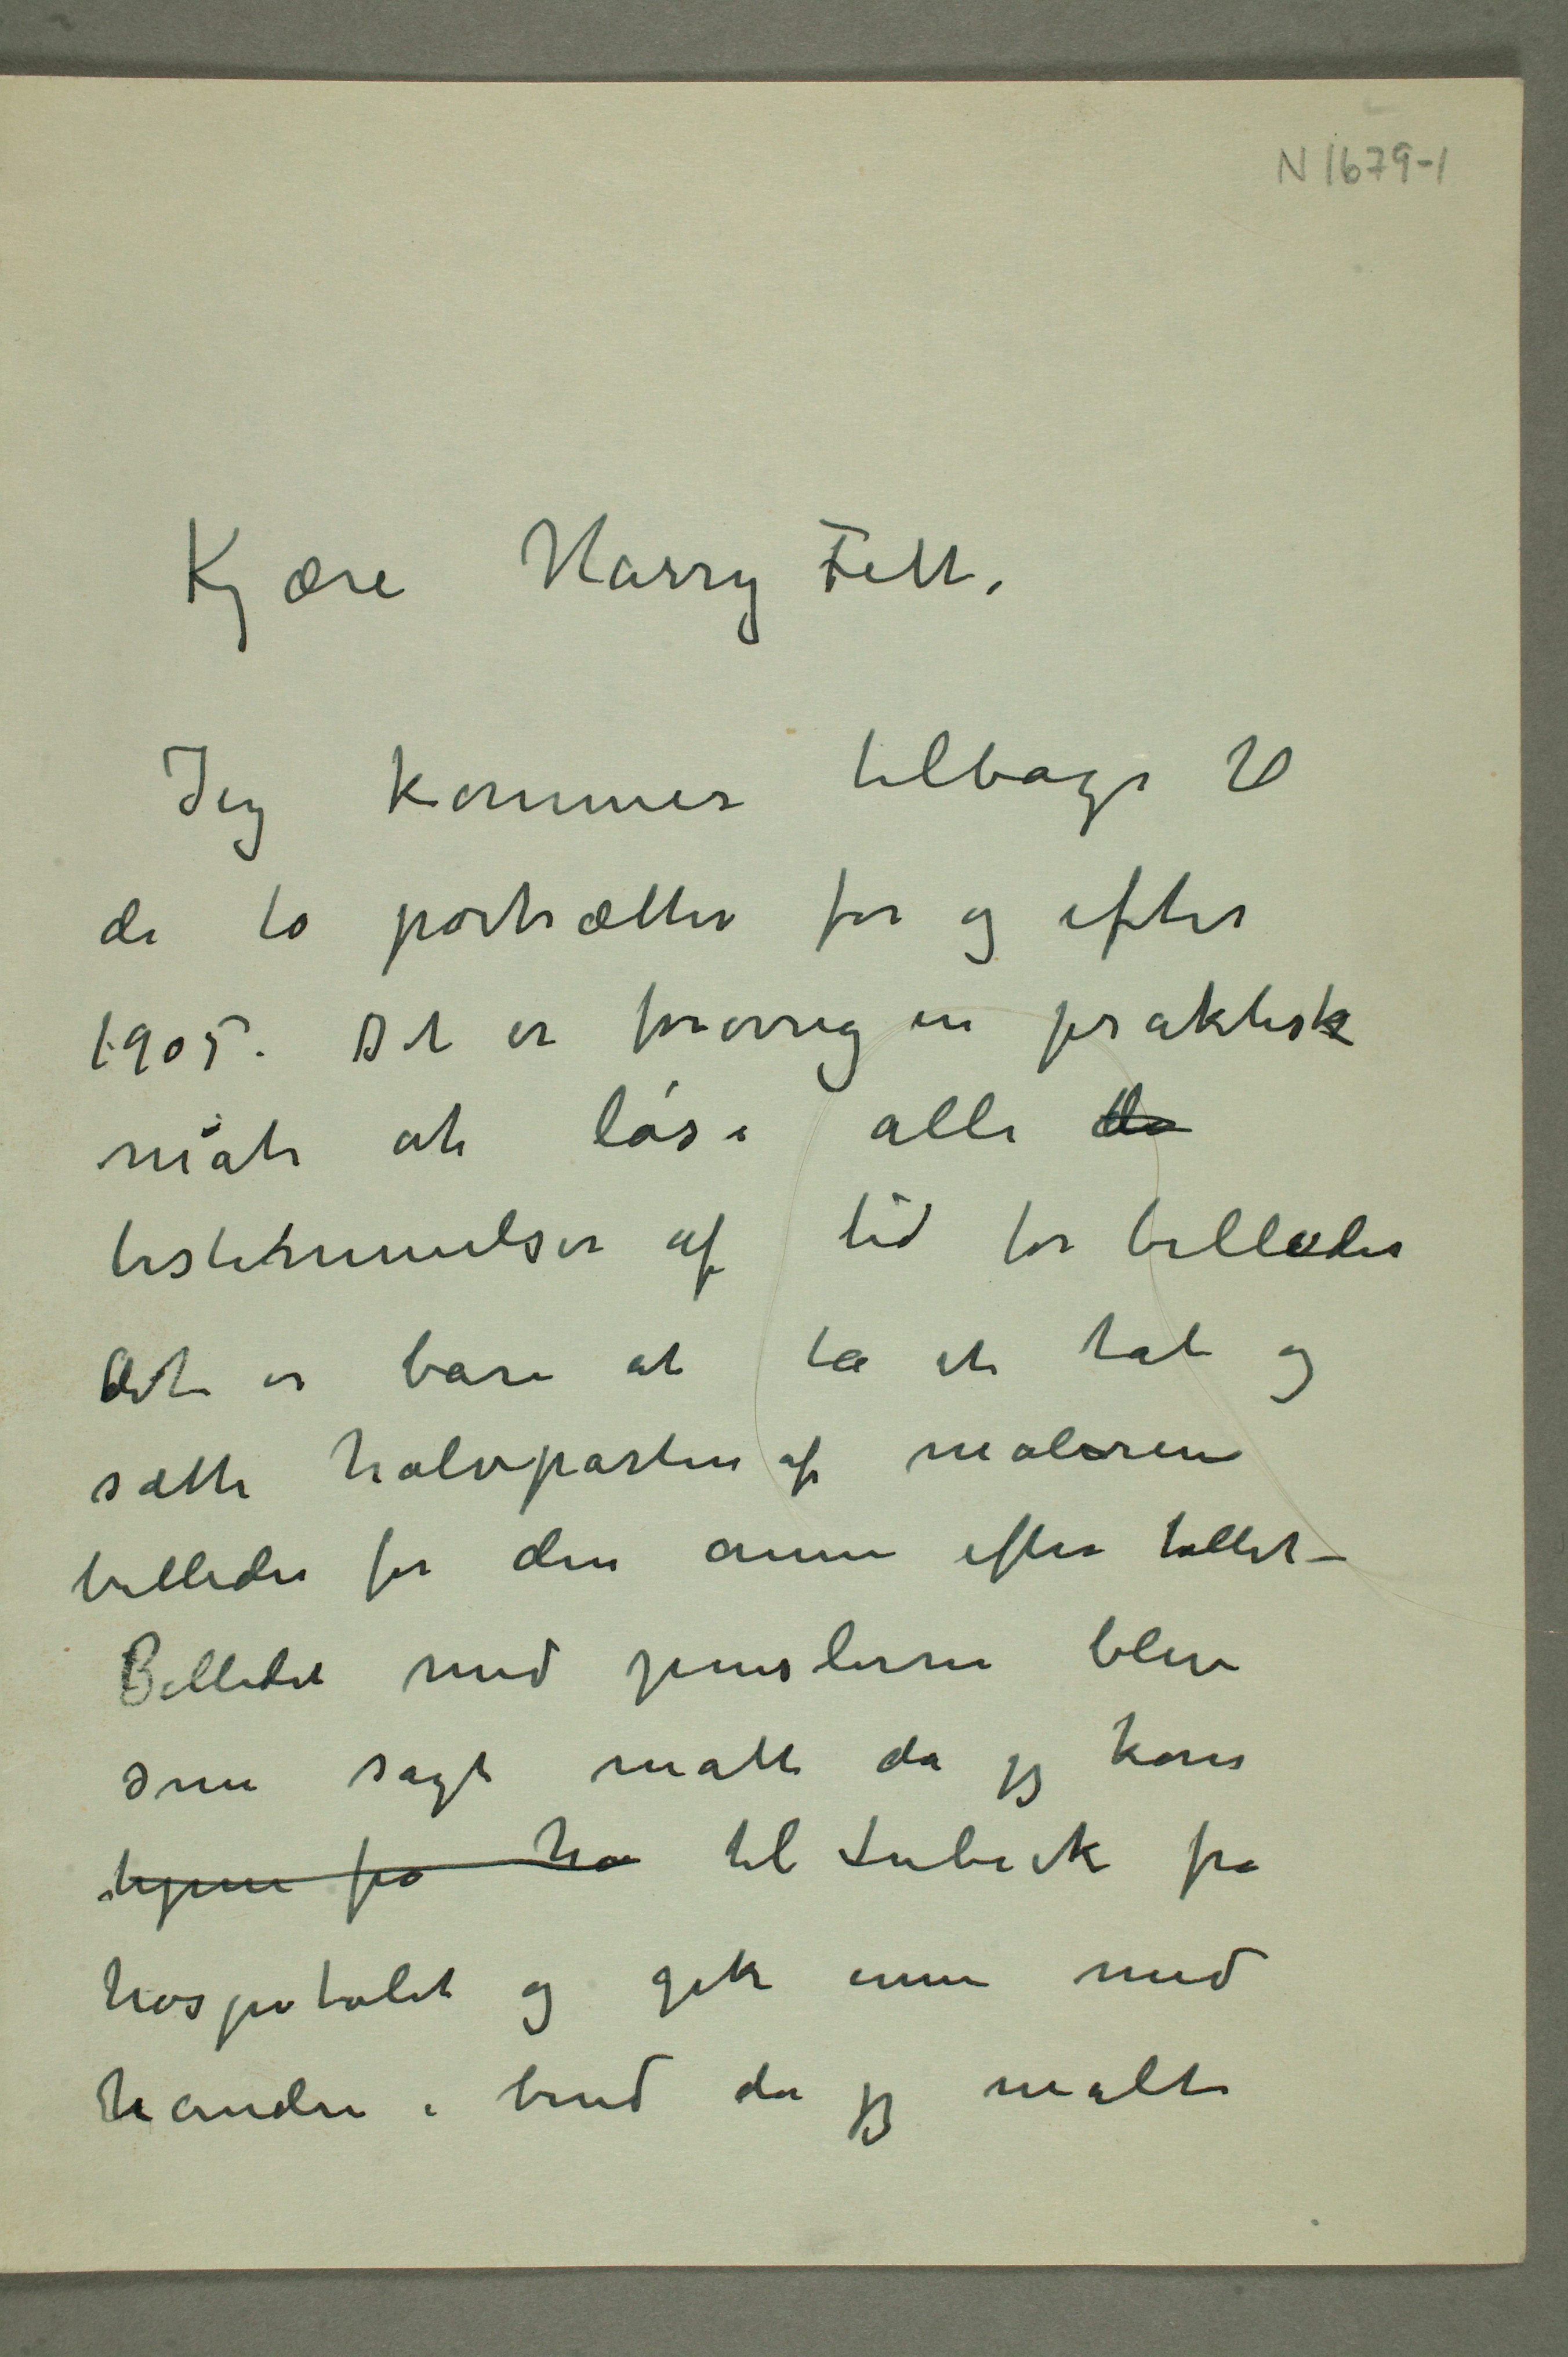 N 1679-1
Kjære Harry Fett.
Jeg kommer tilbage til
de to portrætter før og efter
1905. Det er forøvrig en praktisk
måte at løse alle de
bestemmelser af tid for billeder
det er bare at ta et tal og
sætte halvparten af malerens
billeder før den annen efter tallet –
Billedet med penslerne blev
som sagt malt da jeg kom
hjem fra ho til Lubeck fra
hospitalet og gik ennu med
hånden i bind da jeg malte